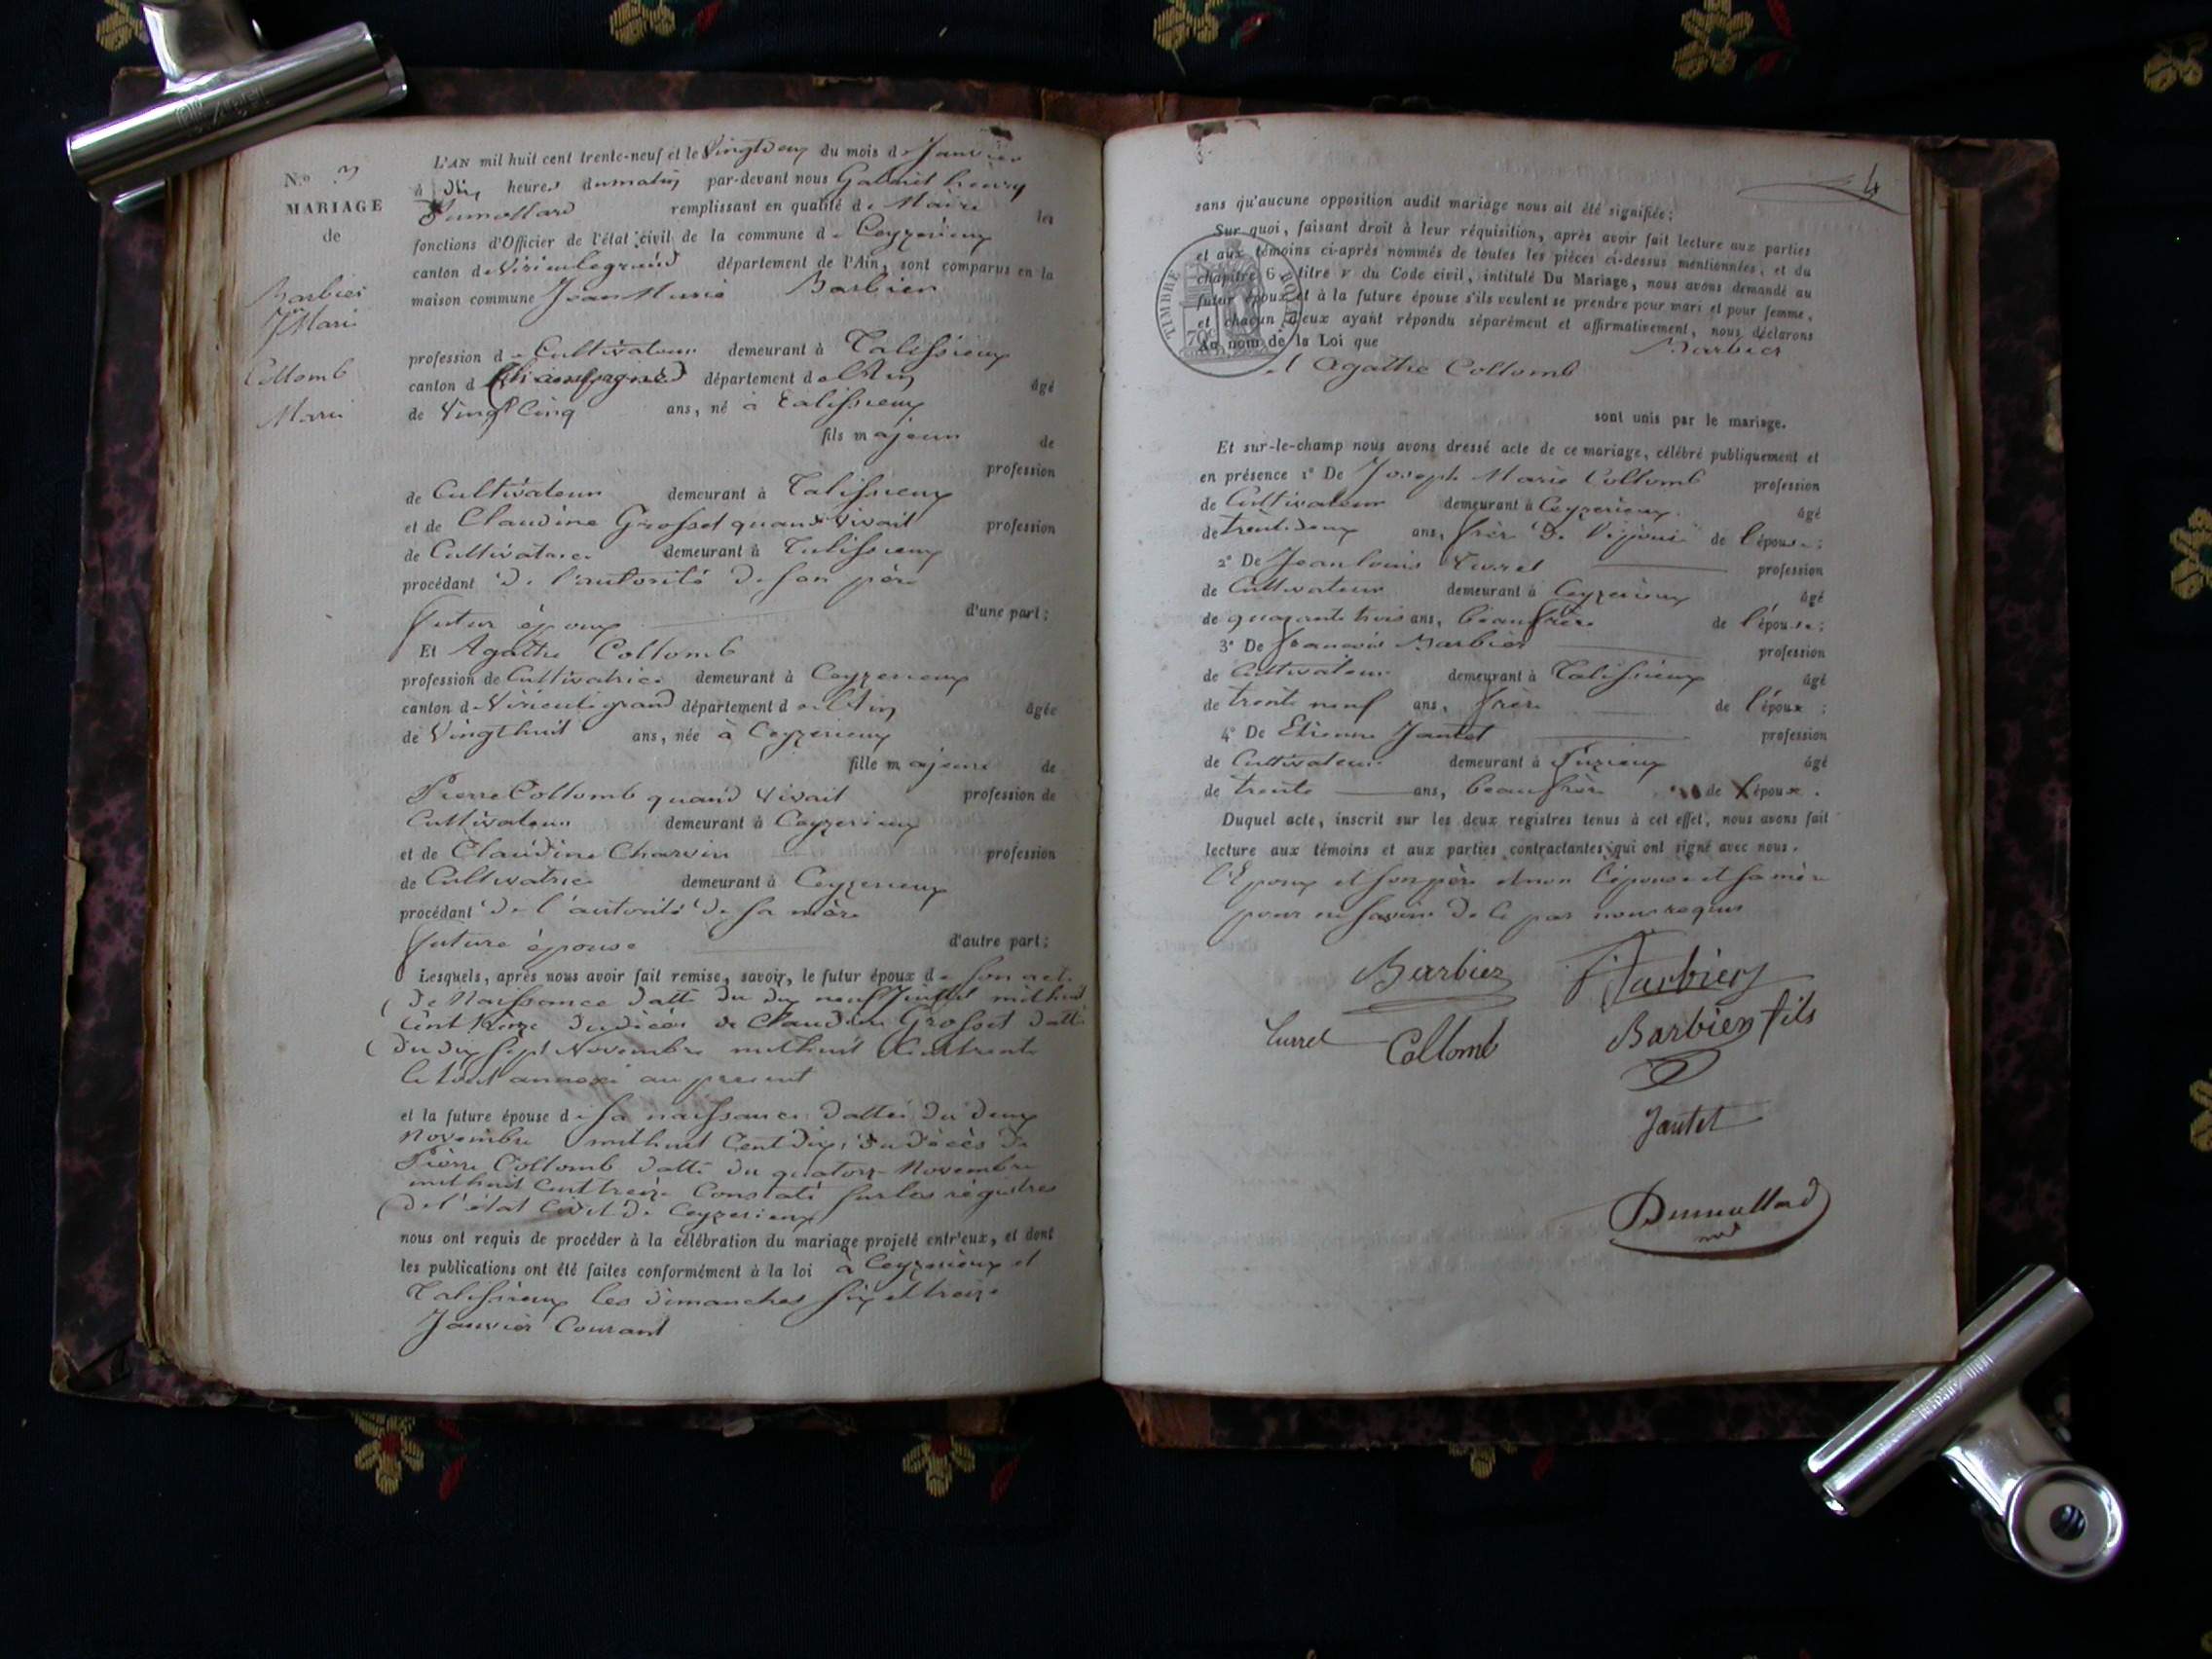 N.° 3
MARIAGE
de
Barbier
J.n Marie
Collomb
Marie
L'AN mil huit cent trente-neuf et le Vingtdeux du mois de Janvier
à dix heures du matin par-devant nous Gabriel henry
Dumollard remplissant en qualité de Maire les
fonctions d'Officier de l'état civil de la commune de Ceyzerieux
canton de Virieulegrand département de l'Ain, sont comparus en la
maison commune Jean Marie Barbier
profession de Cultivateur demeurant à Talissieux
canton d Champagne département de l'Ain âgé
de Vingt Cinq ans, né à Talissieux
fils majeur de
profession
de Cultivateur demeurant à Talissieux
et de Claudine Grosset quand vivait profession
de Cultivatrice demeurant à Talissieux
procédant de l'autorité de son père
futur époux d'une part;
Et Agathe Collomb
profession de Cultivatrice demeurant à Ceyzerieux
canton de Virieulegrand département de l'Ain âgée
de Vingthuit ans, née à Ceyzerieux
fille majeure de
Pierre Collomb quand vivait profession de
Cultivateur demeurant à Ceyzerieux
et de Claudine Charvin profession
de Cultivatrice demeurant à Ceyzerieux
procédant de l'autorité de sa mère
future épouse d'autre part;
Lesquels, après nous avoir fait remise, savoir, le futur époux de son acte
de Naissance datté du dix neuf Juillet mil huit
Cent treize du décés de Claudine Grosset datté
du dix Sept Novembre mil huit Cent trente
le tout annexé au present
et la future épouse de sa naissance dattée du deux
Novembre mil huit Cent dix, du décès de
Pierre Collomb datté du quatorze Novembre
mil huit Cent treize Constaté sur les régistres
de l'état Civil de Ceyzerieux
nous ont requis de procéder à la célébration du mariage projeté entr'eux, et dont
les publications ont été faites conformément à la loi à Ceyzerieux et
Talissieux les dimanches six et treize
Janvier Courant
4
sans qu'aucune opposition audit mariage nous ait été signifiée;
Sur quoi, faisant droit à leur réquisition, après avoir fait lecture aux parties
et aux témoins ci-après nommés de toutes les pièces ci-dessus mentionnées, et du
chapitre 6, titre V du Code civil, intitulé Du Mariage, nous avons demandé au
futur époux et à la future épouse s'ils veulent se prendre pour mari et pour femme,
et chacun d'eux ayant répondu séparément et affirmativement, nous déclarons
au nom de la Loi que Barbier
et Agathe Collomb
TIMBRE ROYAL
70c
sont unis par le mariage.
Et sur-le-champ nous avons dressé acte de ce mariage, célébré publiquement et
en présence 1° De Joseph Marie Collomb profession
de Cultivateur demeurant à Ceyzerieux âgé
de trente deux ans, frère de l'épouse;
2° De Jean louis profession
de Cultivateur demeurant à Ceyzerieux âgé
de quarante trois ans, beau frère de l'épouse;
3° De francois Barbier profession
de Cultivateur demeurant à Talissieux âgé
de trente neuf ans, frère de l'époux;
4° De Etienne Jantet profession
de Cultivateur demeurant à âgé
de trente ans, beau frère de l'époux.
Duquel acte, inscrit sur les deux registres tenus à cet effet, nous avons fait
lecture aux témoins et aux parties contractantes qui ont signé avec nous,
l'Epoux et son père et non l'épouse et sa mère
pour ne savoir de ce par nous requis
Barbier Barbier
Collomb Barbier fils
Jantet
Dumollard